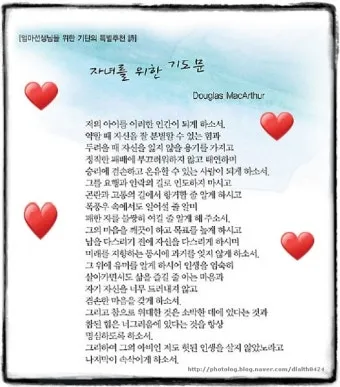 [엄마선생님을 위한 기탄의 특별추천 詩]
자녀를 위한 기도문
Douglas MacArthur
저의 아이를 이러한 인간이 되게 하소서.
약할 때 자신을 잘 분별할 수 있는 힘과
두려울 때 자신을 잃지 않을 용기를 가지고
정직한 패배에 부끄러워하지 않고 태연하며
승리에 겸손하고 온유할 수 있는 사람이 되게 하소서.
그를 요행과 안락의 길로 인도하지 마시고
곤란과 고통의 길에서 항거할 줄 알게 하시고
폭풍우 속에서도 일어설 줄 알며
패한 자를 불쌍히 여길 줄 알게 해 주소서.
그의 마음을 깨끗이 하고 목표를 높게 하시고
남을 다스리기 전에 자신을 다스리게 하시며
미래를 지향하는 동시에 과거를 잊지 않게 하소서.
그 위에 유머를 알게 하시어 인생을 엄숙히
살아가면서도 삶을 즐길 줄 아는 마음과
자기 자신을 너무 드러내지 않고
겸손한 마음을 갖게 하소서.
그리고 참으로 위대한 것은 소박한 데에 있다는 것과
참된 힘은 너그러움에 있다는 것을 항상
명심하도록 하소서.
그리하여 그의 아비인 저도 헛된 인생을 살지 않았노라고
나지막이 속삭이게 하소서.
http://photolog.blog.naver.com/dlalth0424